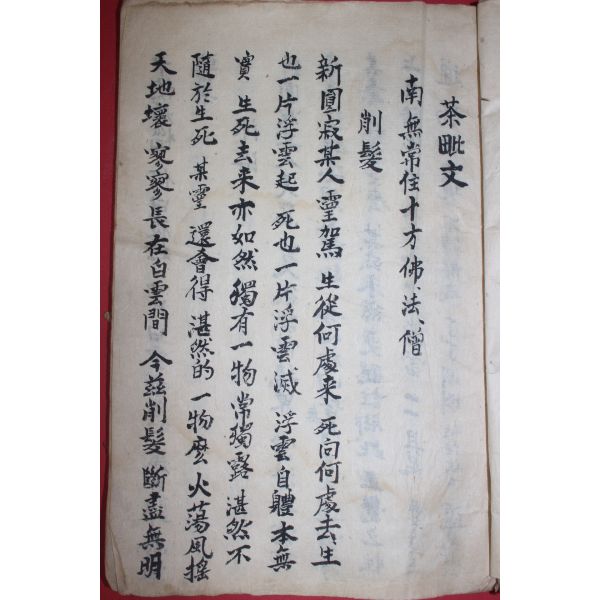 茶毗文
南無常住十方佛、法、僧
削髮
新圓寂某人靈駕 生從何處来 死向何處去 生
也一片浮雲起 死也一片浮雲滅 浮雲自軆本無
實 生死去来亦如然 獨有一物常獨露 湛然不
隨於生死 某靈 還會得 湛然的 一物麽 火蕩風搖
天地壞 寥寥長在白雲間 今玆削髮 斷盡無明